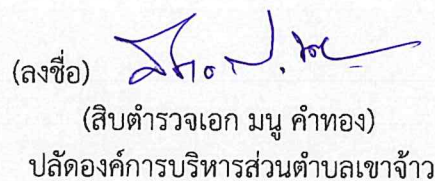 (ลงชื่อ)
(สิบตำรวจเอก มนู คำทอง)
ปลัดองค์การบริหารส่วนตำบลเขาจ้าว